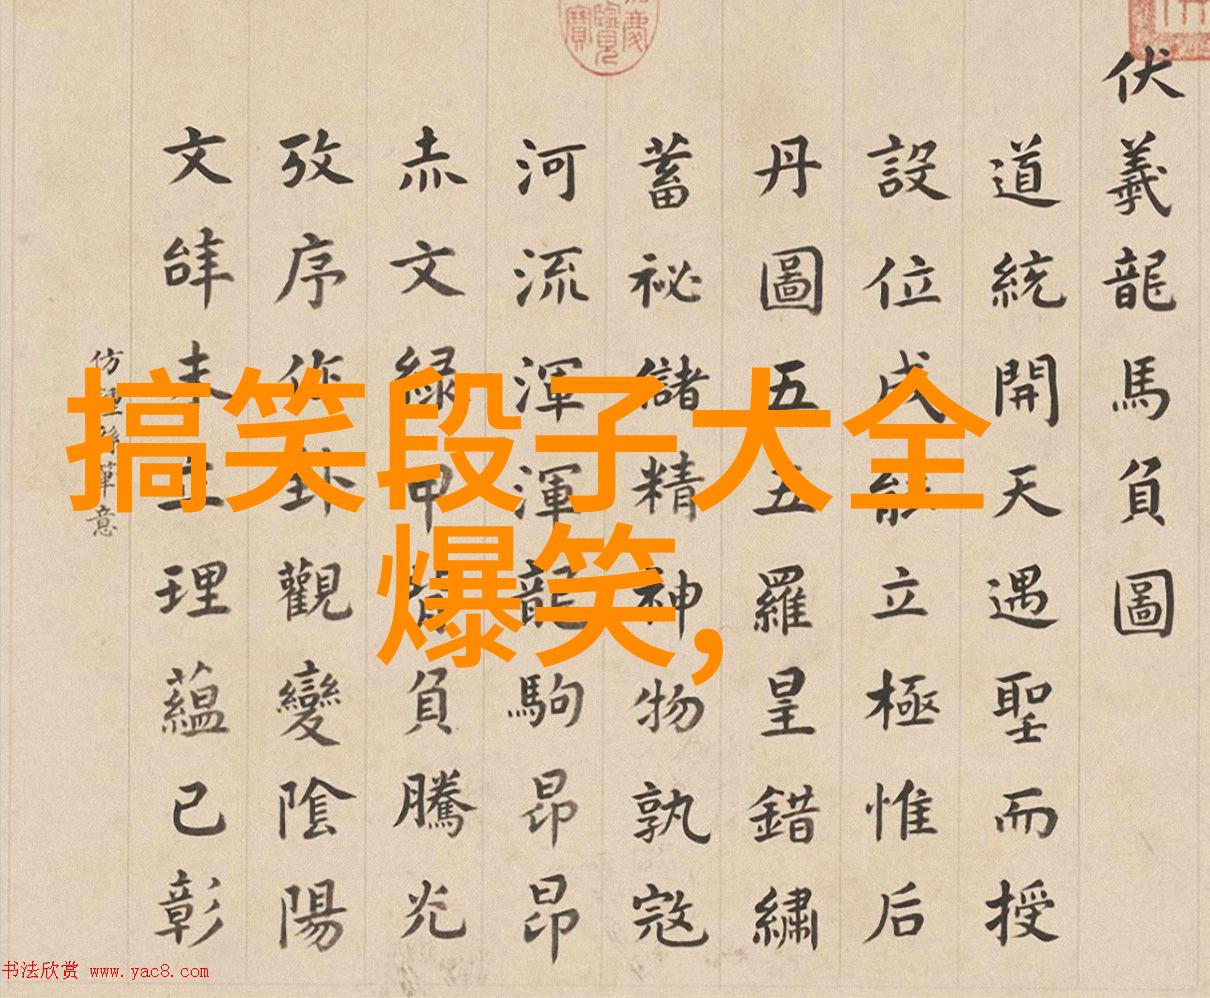 伏羲龍馬負圖
道統開天遇聖而授
設位成能立極惟后
丹圖五五羅皇錯繡
蓄祕儲精神物孰寇
河流渾渾龍駒昂昂
赤文綠甲背負騰光
攷序作卦觀變陰陽
文辭未立理蘊已彰
仿意
搞笑段子大全
爆笑,
书法欣赏 www.yac8.com